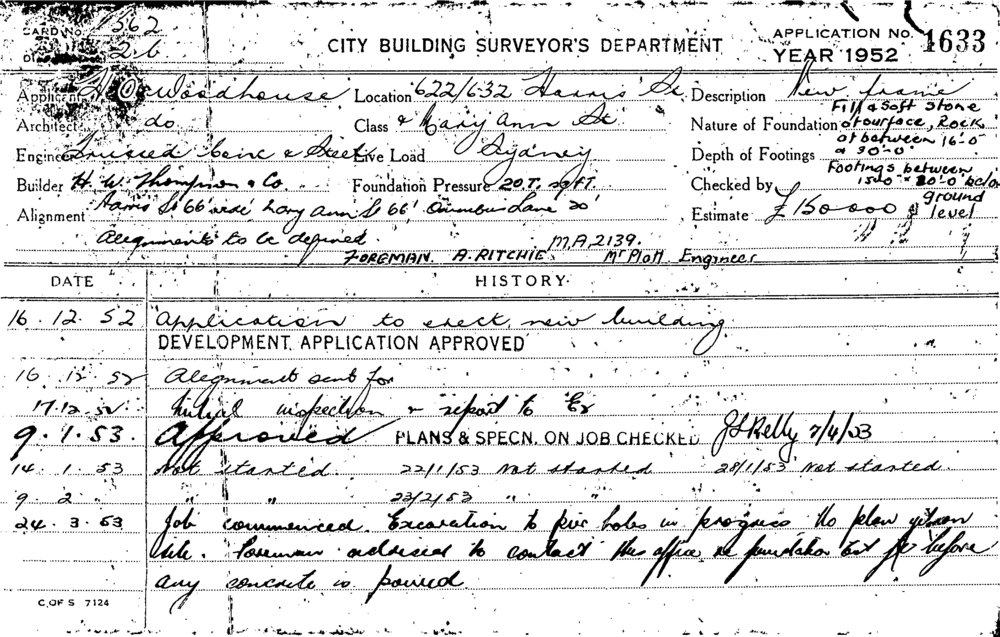 CARD No. 562
26
CITY BUILDING SURVEYOR'S DEPARTMENT
APPLICATION No. 1633
YEAR 1952
Applicant H. O. Woodhouse Location 622/632 Harris St. Description New frame
Architect do Class & Mary Ann St Nature of Foundation Fill & soft stone at surface, Rock at between 16-0 & 30-0
Engineer Trussed Conc & Steel Live Load Sydney Depth of Footings
Builder H. W. Thompson & Co Foundation Pressure 20T. sq FT. Checked by Footings between 15-0 & 30-0 below ground level
Alignment Harris St 66' wide Mary Ann St 66', Omnibus Lane 20' Estimate £150000
Alignments to be defined. M.A. 2139.
FOREMAN A. RITCHIE Mr Platt Engineer
DATE HISTORY
16. 12. 52 Application to erect new building.
DEVELOPMENT APPLICATION APPROVED
16 12 52 Alignment sent for
17.12.52 Initial inspection & report to
9. 1. 53. Approved PLANS & SPECN. ON JOB CHECKED JS Kelly 7/4/53
14. 1. 53 Not started. 22/1/53 Not started 28/1/53 Not started.
9. 2 " " " 23/2/53 " "
24. 3. 53 Job commenced. Excavation to pier holes in progress No plan yet on
site. Foreman advised to contact this office re foundation test before
any concrete is poured
C. OF S 7124